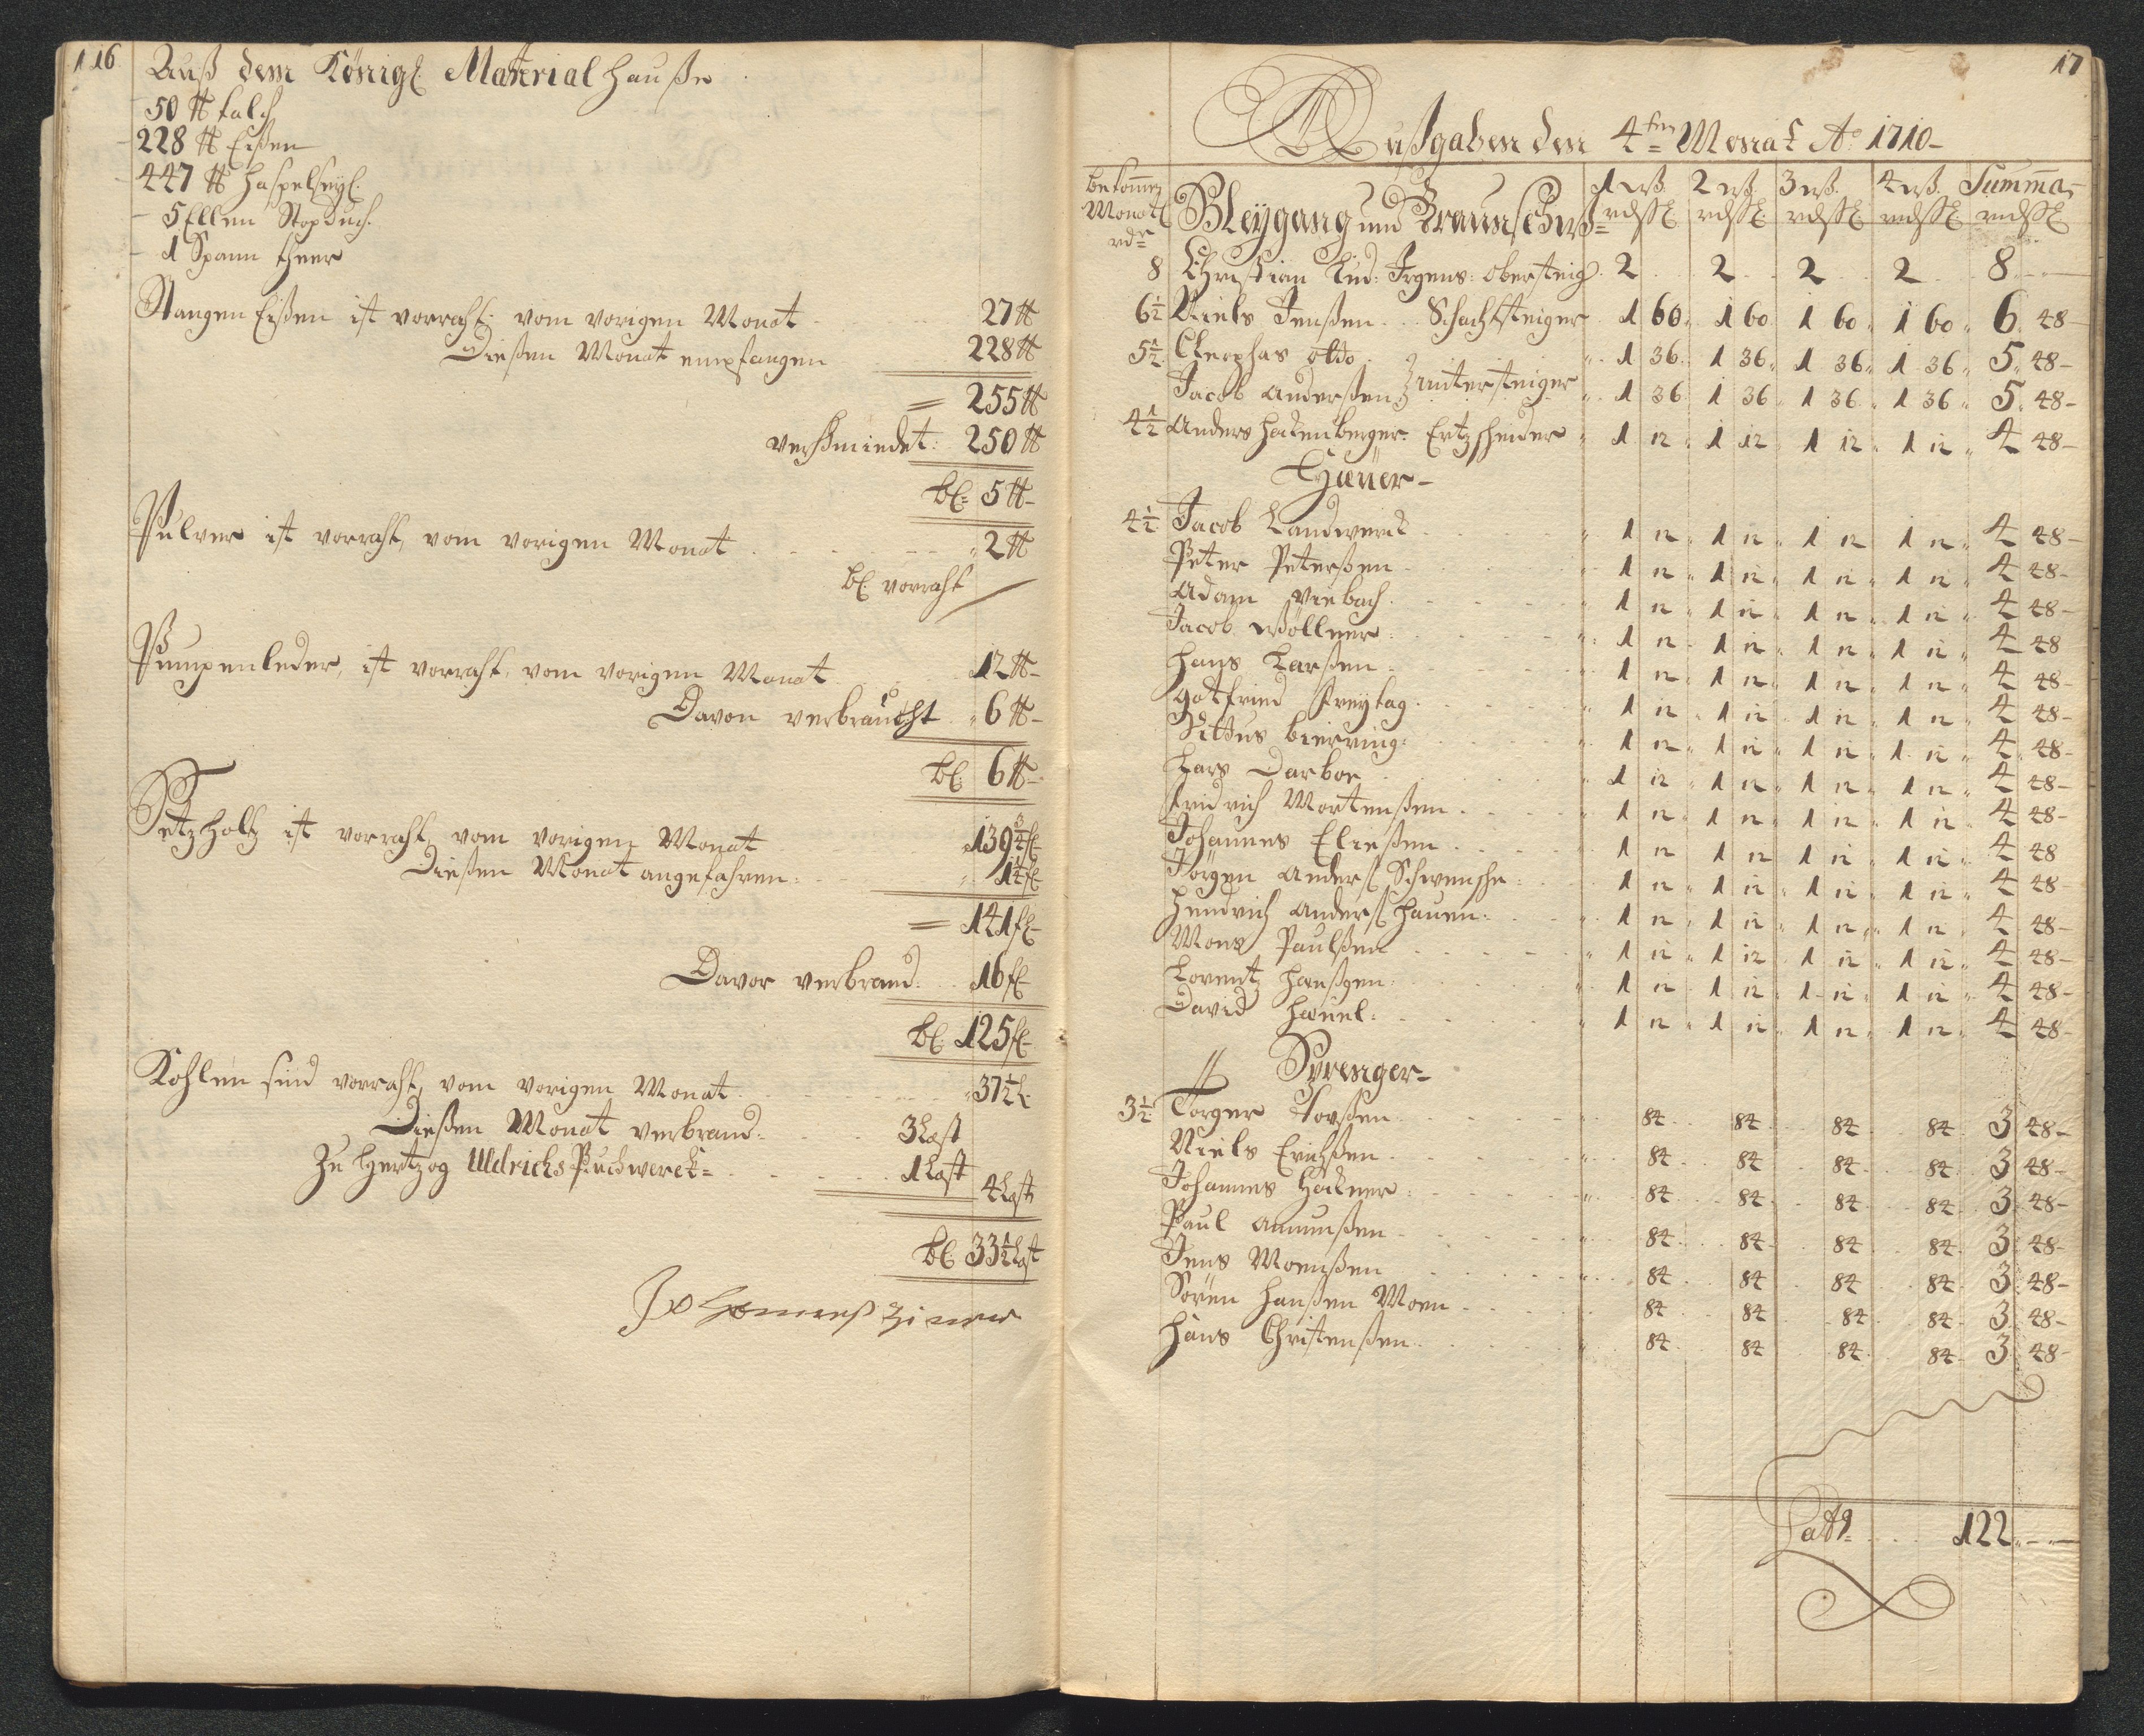 116
Auß dem Königl Material Hauße
- 50 ℔ talch
- 228 ℔ Eißen
- 447 ℔ haspelseyl
- 5 Ellen Stopduch
- 1 Spann theer
Stangen Eißen ist vorraht vom vorigen Monat 27 ℔
Dießen Monat empfangen 228 ℔
= 255 ℔
verschmiedet: 250 ℔
bl: 5 ℔
Pulver ist vorraht, vom vorigen Monat 2 ℔
bl vorraht
Pumpenleder, ist vorraht, vom vorigen Monat 12 ℔
Davon verbraucht 6 ℔
bl 6 ℔
Setzholtz ist vorraht, vom vorigen Monat 139 3/4 fl
Dießen Monat angefahren: 1 1/4 fl
= 141 fl
Davor verbrand: 16 fl
bl. 125 fl
Kohlen sind vorraht, vom vorigen Monat 37 1/2 L
Dießen Monat verbrand: 3 Last
Zu Hertzog Uldrichs Puchwerck= 1 Last 4 Last
bl. 33 1/2 Last
17
Außgaben den 4ten Monat Ao 1710
bekommen Monatl rdr
Bleygang und Braunschw= 1 wß. 2 wß. 3 wß. 4 wß. Summa
rdßl rdßl rdßl rdßl rdßl
8 Christian Lud: Irgens: obersteig. 2 2 2 2 8
6 1/2 Niels Jenßen Schachtsteiger 1 60 1 60 1 60 1 60 6 48
5 1/2 Cleophas otto 1 36 1 36 1 36 1 36 5 48
Jacob Anderßen } untersteiger 1 36 1 36 1 36 1 36 5 48
4 1/2 Anders Hackenberger: Ertzscheider 1 12 1 12 1 12 1 12 4 48
Häuer
4 1/2 Jacob Landwerck 1 12 1 12 1 12 1 12 4 48
Peter Peterßen 1 12 1 12 1 12 1 12 4 48
Adam Viebach 1 12 1 12 1 12 1 12 4 48
Jacob Wöllner: 1 12 1 12 1 12 1 12 4 48
Hans Larßen 1 12 1 12 1 12 1 12 4 48
Gotfried Freytag 1 12 1 12 1 12 1 12 4 48
Tittus bierring: 1 12 1 12 1 12 1 12 4 48
Lars Darboe 1 12 1 12 1 12 1 12 4 48
Fridrich Mortenßen 1 12 1 12 1 12 1 12 4 48
Johannes Eließen 1 12 1 12 1 12 1 12 4 48
Jörgen Anderß Schwensche: 1 12 1 12 1 12 1 12 4 48
Hendrich Anderß Hauen: 1 12 1 12 1 12 1 12 4 48
Mons Paulßen 1 12 1 12 1 12 1 12 4 48
Lorentz Hanßgen: 1 12 1 12 1 12 1 12 4 48
David Hänel: 1 12 1 12 1 12 1 12 4 48
Sprenger
3 1/2 Torger Torßen 84 84 84 84 3 48
Niels Erichßen 84 84 84 84 3 48
Johannes Häckner: 84 84 84 84 3 48
Paul Amunßen 84 84 84 84 3 48
Jens Moenßen 84 84 84 84 3 48
Sören Hanßen Moen 84 84 84 84 3 48
Hans Christenßen 84 84 84 84 3 48
Latt 122